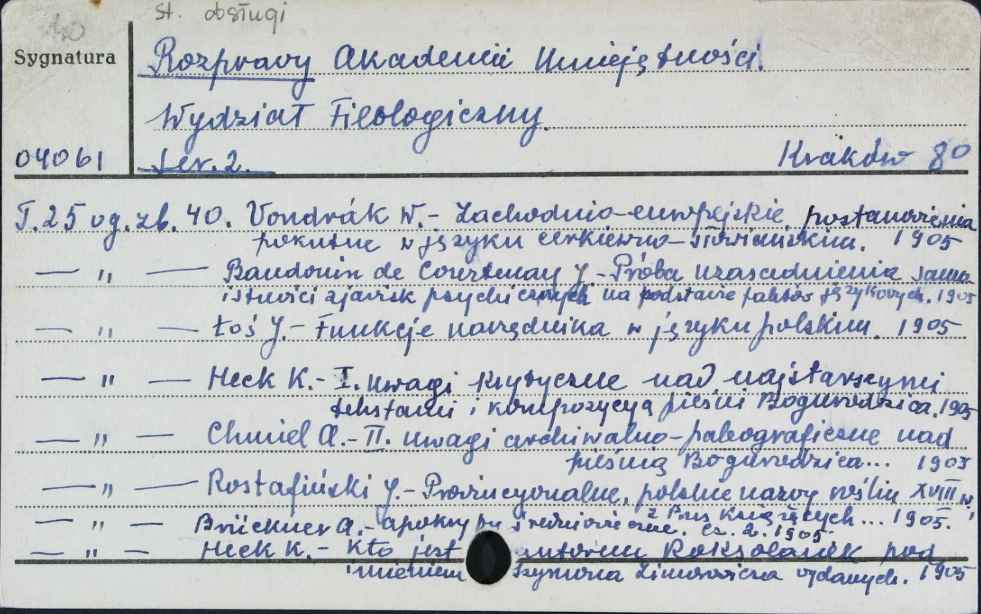 st. obsługi
Sygnatura
Rozprawy Akademii Umiejętności.
Wydział Filologiczny.
04061 Ser. 2. Kraków 8º
T. 25 og. zb. 40. Vondrák W. - Zachodnio-europejskie postanowienia
pokutne w języku cerkiewno-słowiańskim. 1905
— " — Baudouin de Courtenay J. - Próba uzasadnienia samo
istności zjawisk psychicznych na podstawie faktów językowych. 1905
— " — Łoś J. - Funkcje narzędnika w języku polskim. 1905
— " — Heck K. - I. Uwagi krytyczne nad najstarszymi
tekstami i kompozycją pieśni Bogurodzica. 1905
— " — Chmiel A. - II. Uwagi archiwalno-paleograficzne nad
pieśnią Bogurodzica... 1905
— " — Rostafiński J. - Prowincyonalne, polskie nazwy roślin XVIII w.,
z Prus Książęcych... 1905.
— " — Brückner A. - Apokryfy średniowieczne. Cz. 2. 1905
— " — Heck K. - Kto jest autorem Roksolanek pod
imieniem Szymona Zimorowicza wydanych. 1905